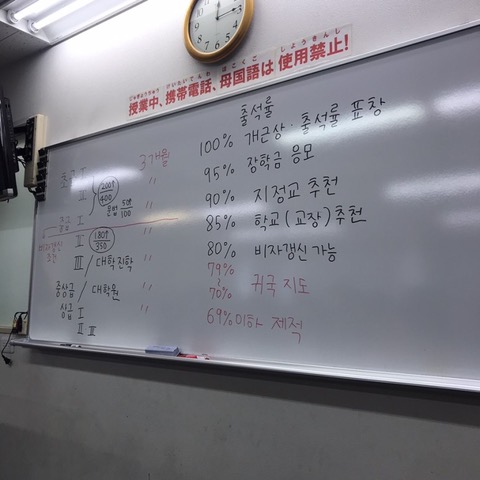 授業中、携帯電話、母国語は使用禁止!
じゅぎょうちゅう けいたいでんわ ぼこくご しようきんし
출석률
100% 개근상·출석률 표창
95% 장학금 응모
90% 지정교 추천
85% 학교(교장)추천
80% 비자갱신 가능
79%
~
70% 귀국 지도
69%이하 제적
3개월
초급 I 〃
II 200↑/400 〃
문법 50↑/100
중급 I 〃
비자갱신
II 180↑/350 〃
III / 대학진학 〃
중상급 / 대학원 〃
상급 I 〃
II·III